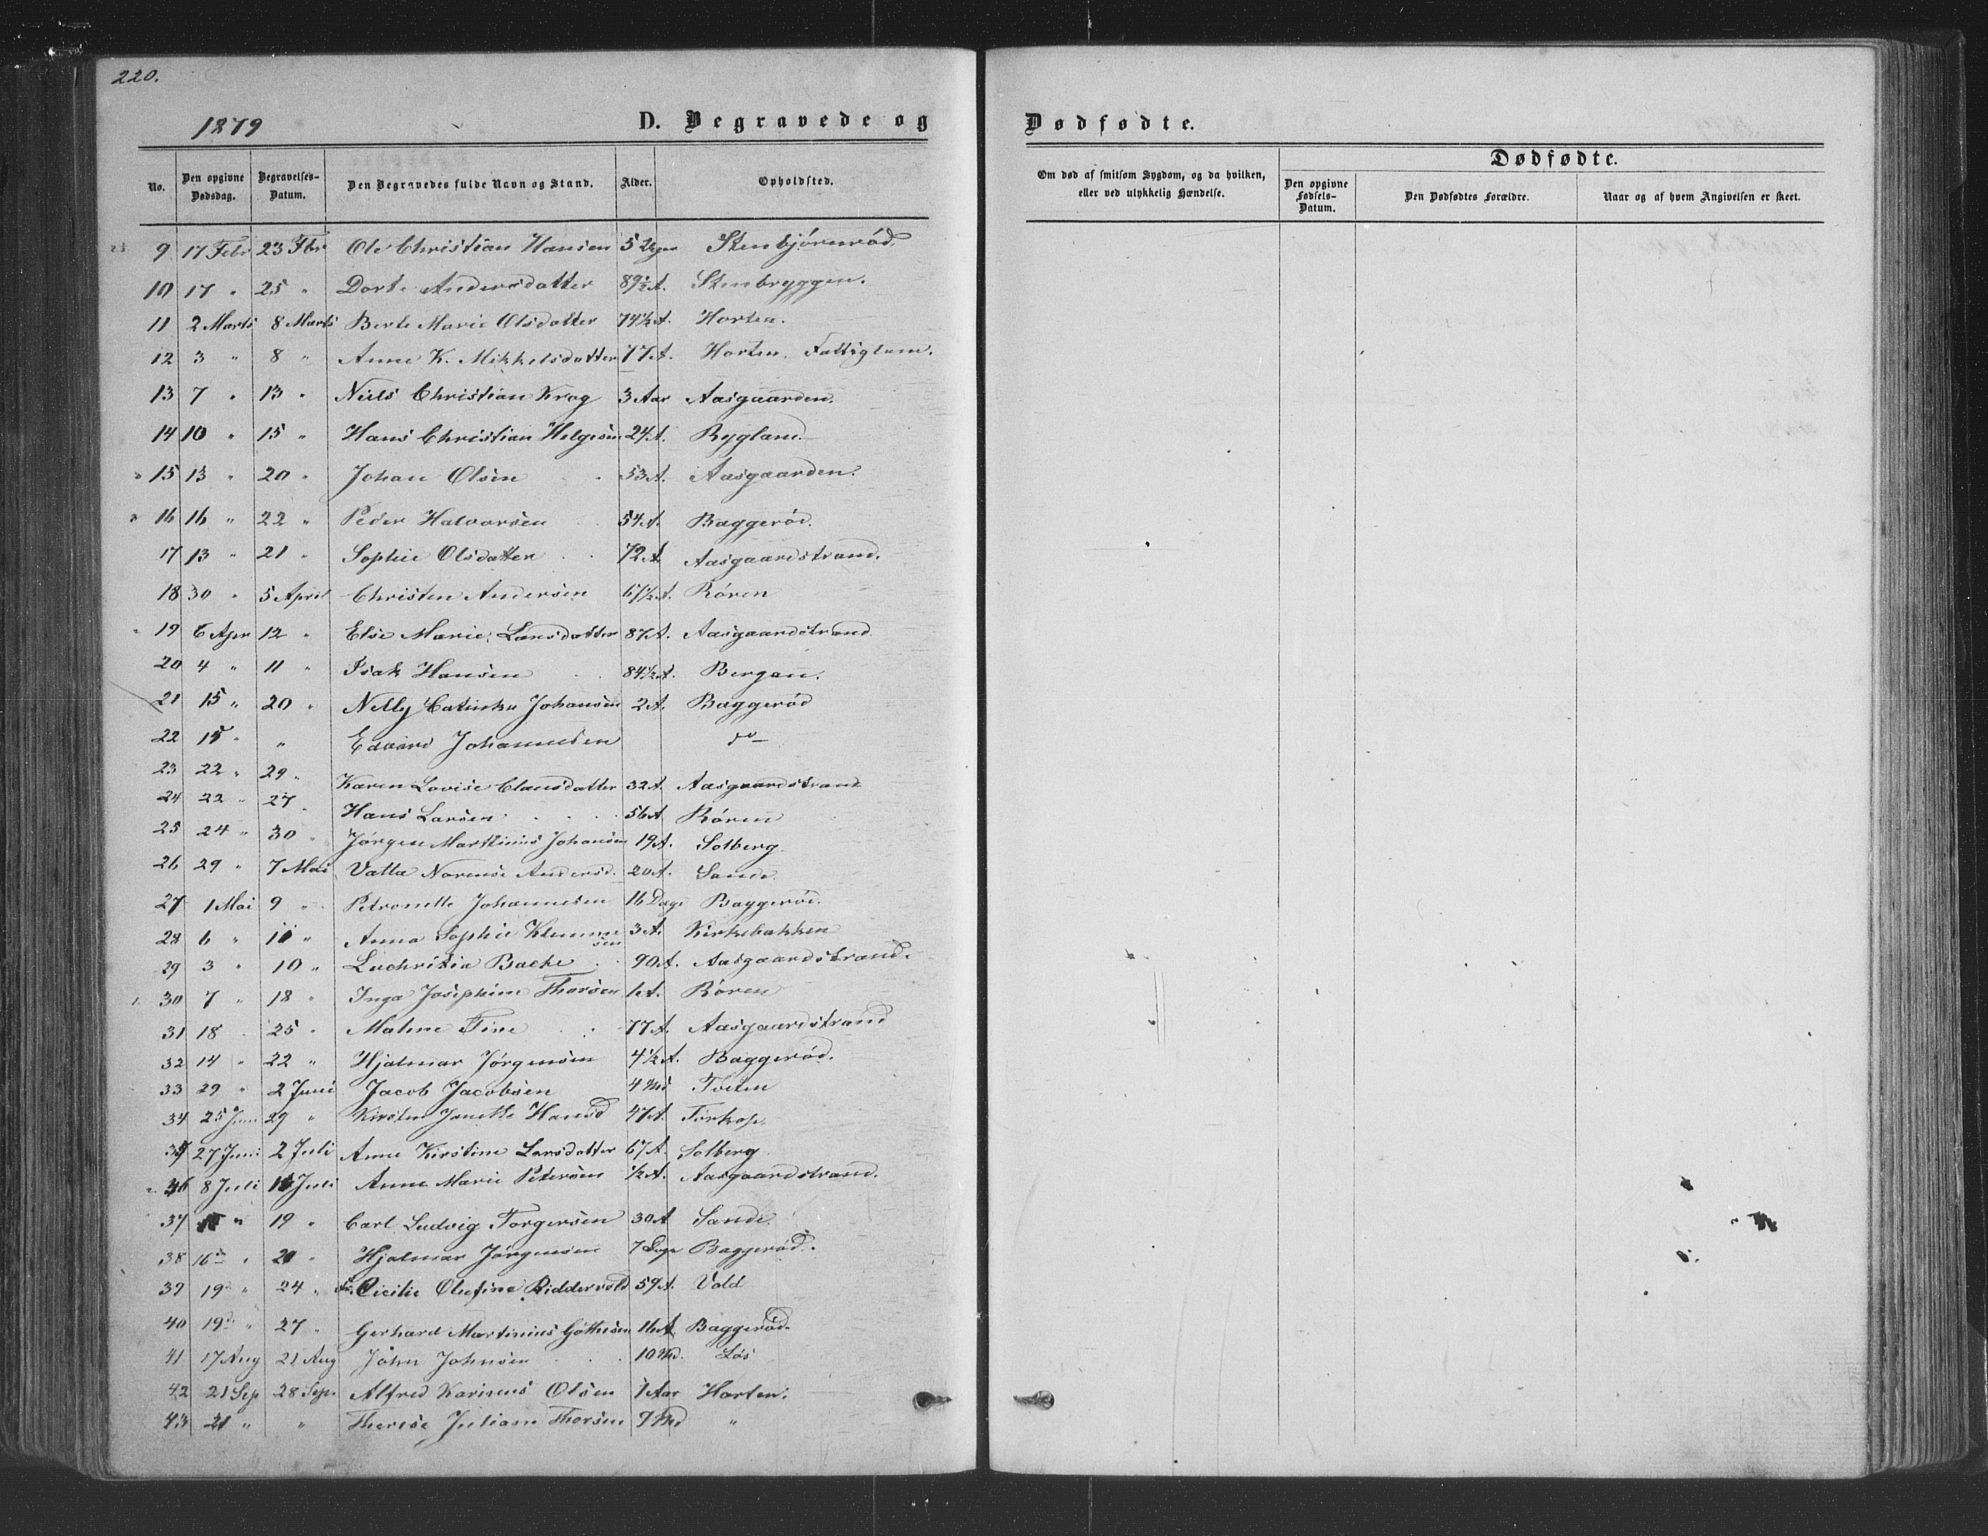 220.
1879 D. Begravede og Dødfødte.
Dødfødte.
No. Den opgivne Dødsdag. Begravelses-Datum. Den Begravedes fulde Navn og Stand. Alder. Opholdsted. Om død af smitsom Sygdom, og da hvilken, eller ved ulykkelig Hændelse. Den opgivne Fødsels-Datum. Den Dødfødtes Forældre. Naar og af hvem Angivelsen er skeet.
9 17 Febr 23 Fbr Ole Christian Hansen 5 Uger Stenbjørnrød
10 17 " 25 " Dorte Andersdatter 89½ A. Stenbryggen.
11 2 Marts 8 Marts Berte Marie Olsdatter 74½ A. Horten.
12 3 " 8 " Anne K. Mikkelsdatter 77 A. Horten. Fattiglem.
13 7 " 13 " Niels Christian Krog 3 Aar Aasgaarden.
14 10 " 15 " Hans Christian Helgesen 24 A. Bygland.
15 13 " 20 " Johan Olsen 53 A. Aasgaarden.
16 16 " 22 " Peder Halvorsen 54 A. Baggerød.
17 13 " 21 " Sophie Olsdatter 72 A. Aasgaardstrand.
18 30 " 5 April Christen Andersen 67½ A. Røren
19 6 Apr 12 " Else Marie Larsdatter 87 A. Aasgaardstrand
20 4 " 11 " Isak Hansen 84½ A. Bergan.
21 15 " 20 " Nelly Catinka Johansen 2 A. Baggerød
22 15 " " Edvard Johannesen do
23 22 " 29 " Karen Lovise Clausdatter 32 A. Aasgaardstrand
24 22 " 27 " Hans Larsen 56 A Røren
25 24 " 30 " Jørgen Marthinus Johansen 19 A. Solberg
26 29 " 7 Mai Norense Andersd. 20 A. Sande.
27 1 Mai 9 " Petronelle Johannesen 16 Dage Baggerød.
28 6 " 11 " Anna Sophie Klemmesen 3 A. Kirkebakken
29 3 " 10 " Luchritia Backe 90 A. Aasgaardstrand.
30 7 " 18 " Inga Josephine Thorsen 1 A. Røren
31 18 25 " Malene Fine 77 A. Aasgaardstrand
32 14 " 22 " Hjalmar Jørgensen 4½ A. Baggerød.
33 29 " 2 Juni Jacob Jacobsen 4 Md
34 25 Juni 29 " Kirsten Janette Hansd 47 A. Førkop.
35 27 Juni 2 Juli Anne Kirstine Larsdatter 67 A. Solberg
36 8 Juli Juli Anne Marie Petersen ½ A. Aasgaardstrand.
37 " 19 " Carl Ludvig Torgersen 30 A Sande.
38 16 " Hjalmar Jørgensen 7 Dage Baggerød.
39 19 " 24 " Cicilie Olufine Riddervold 59 A. Vold
40 19 " 27 " Gerhard Martinius Gøthesen 16 A Baggerød.
41 17 Aug 21 Aug John Johnsen 10 Md. Løs
42 21 Sep 28 Sep. Alfred Karinus Olsen 1 Aar Horten.
43 21 " " Therese Juliane Thorsen 9 Md "